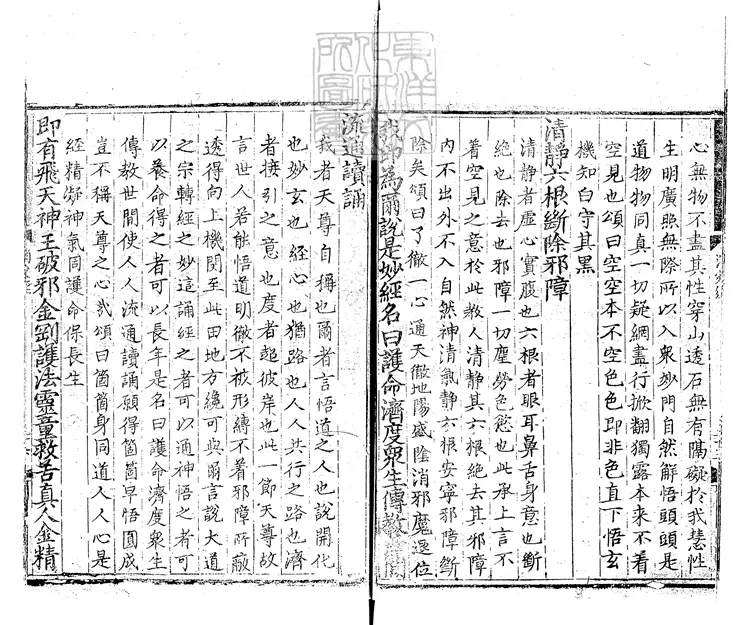 心無物不盡其性穿山透石無有隔礙於我慧性
生明廣照無際所以入衆妙門自然解悟頭頭是
道物物同真一切疑網盡行掀翻獨露本來不着
空見也頌曰空空本不空色色即非色直下悟玄
機知白守其黑
清靜六根斷除邪障
清静者虛心實腹也六根者眼耳鼻舌身意也斷
絶也除去也邪障一切塵勞色慾也此承上言不
着空見之意於此教人清静其六根絶去其邪障
內不出外不入自然神清氣静六根安寧邪障斷
除矣頌曰了徹一心通天徹地陽盛陰消邪魔退位
我即為爾說是妙經名曰護命濟度衆生傳教世間
流通讀誦
我者天尊自稱也爾者言悟道之人也説開化
也妙玄也經心也猶路也人人共行之路也濟
者接引之意也度者超彼岸也此一節天尊故
言世人若能悟道明徹不被形縛不着邪障所蔽
透得向上機関至此田地方纔可與爾言説大道
之宗轉經之妙這誦經之者可以通神悟之者可
以養命得之者可以長年是名曰護命濟度衆生
傳教世間使人人流通讀誦願得箇箇早悟圓成
豈不稱天尊之心哉頌曰箇箇身同道人人心是
經精凝神氣固護命保長生
即有飛天神王破邪金剛護法靈童救苦真人金精